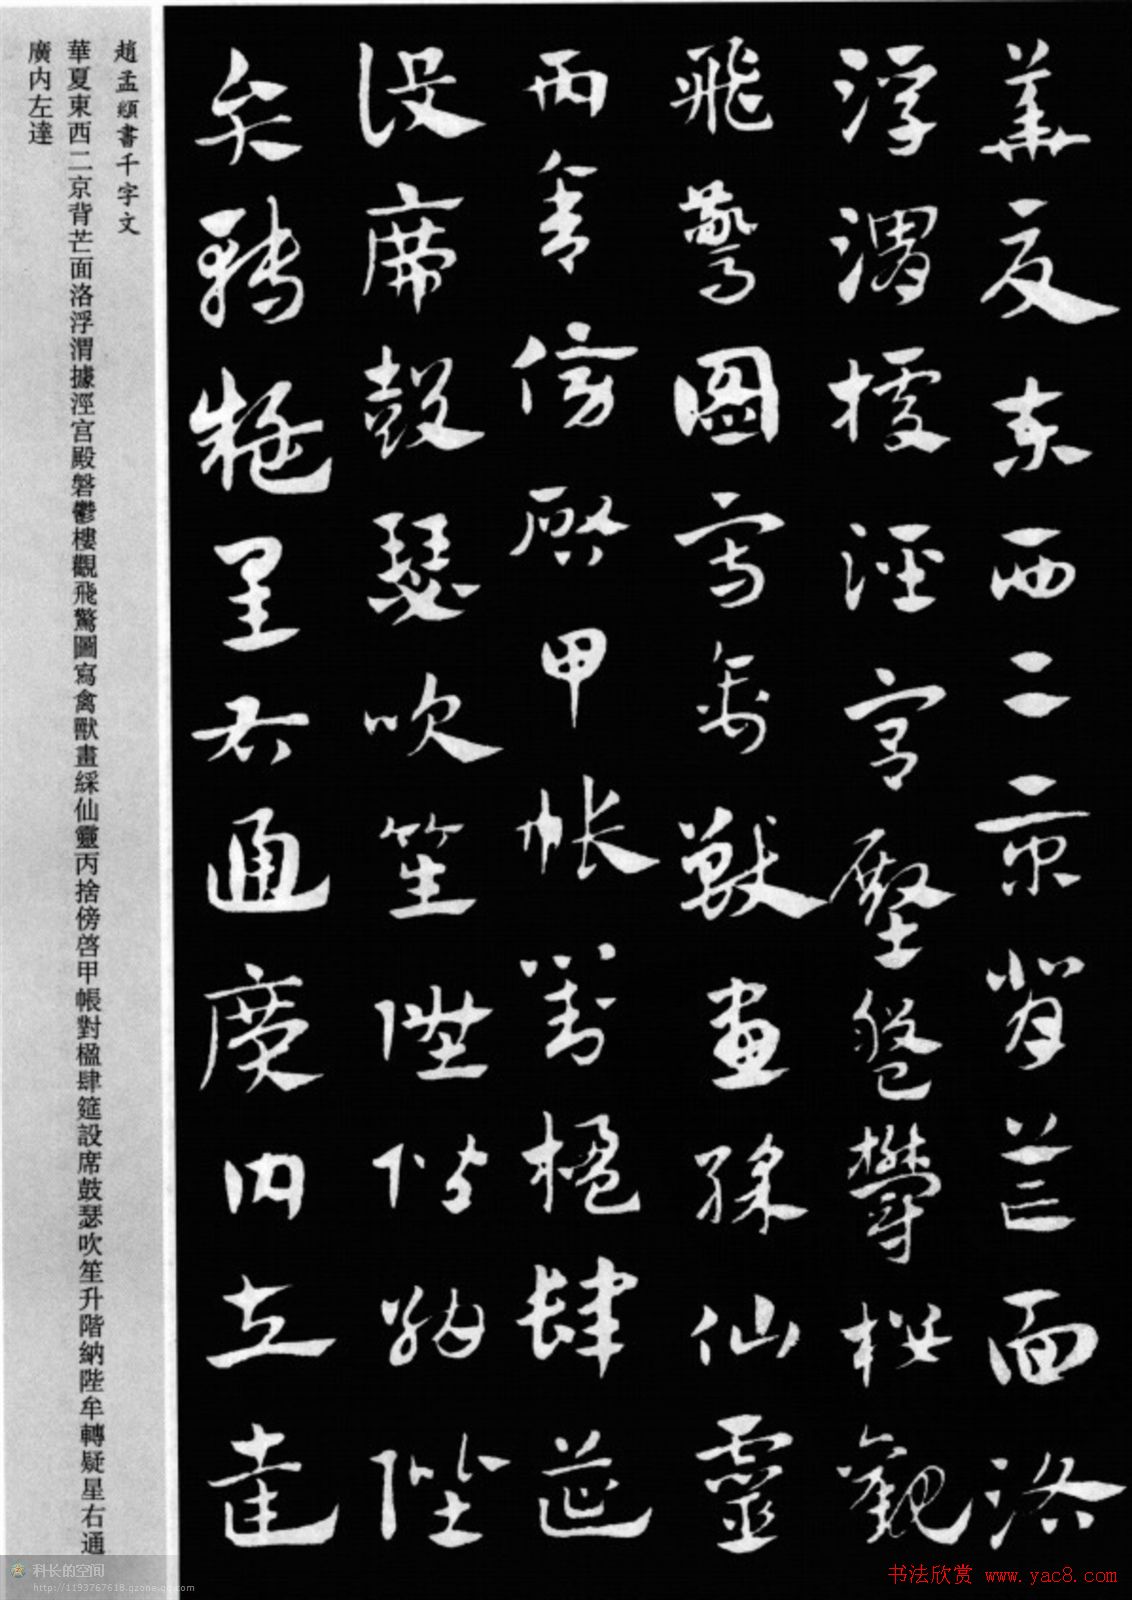 華夏东西二京背芒面洛
浮渭據涇宫殿盤欝楼觀
飛驚圖寫禽獸畫綵仙靈
丙舍傍啓甲帳對楹肆筵
設席鼓瑟吹笙陞階納陛
弁轉疑星右通廣内左達
趙孟頫書千字文
華夏東西二京背芒面洛浮渭據涇宫殿磐鬱樓觀飛驚圖寫禽獸畫綵仙靈丙捨傍啓甲帳對楹肆筵設席鼓瑟吹笙升階納陛牟轉疑星右通
廣内左達
科长的空间
http://1193767618.qzone.qq.com
书法欣赏 www.yac8.com